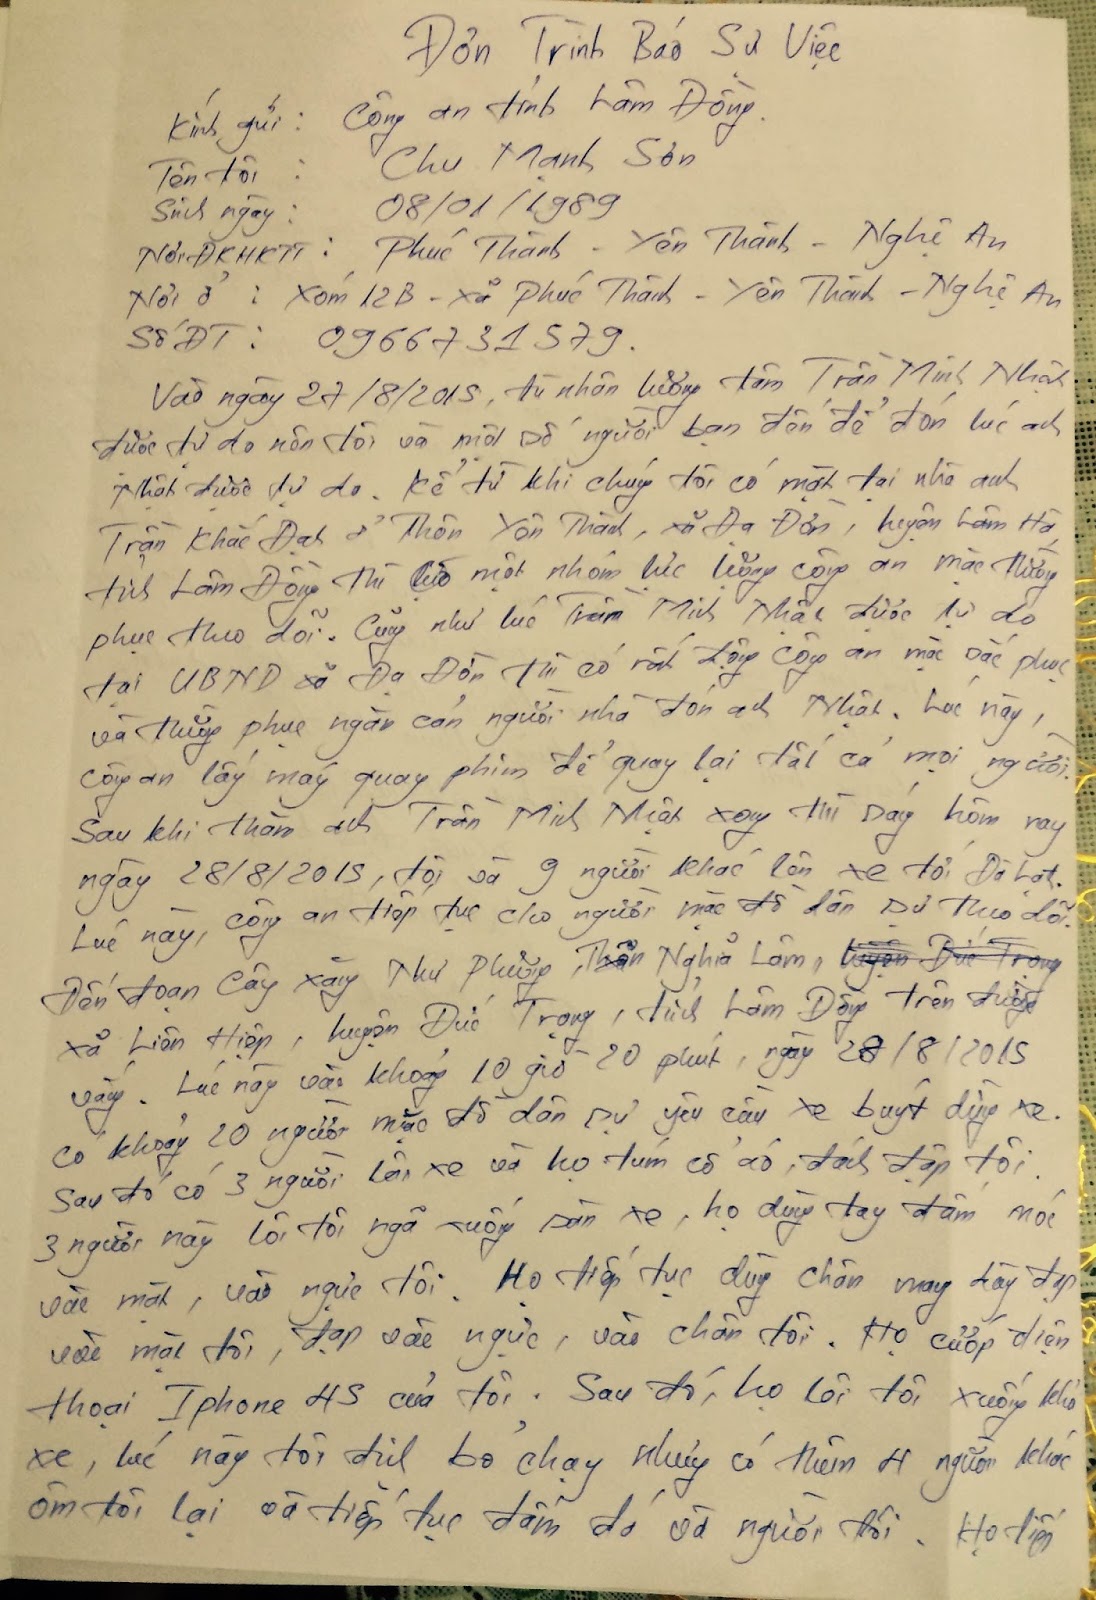 Đơn Trình Báo Sự Việc
Kính gửi : Công an tỉnh Lâm Đồng.
Tên tôi : Chu Mạnh Sơn
Sinh ngày : 08/01/1989
Nơi ĐKHKTT : Phúc Thành - Yên Thành - Nghệ An
Nơi ở : Xóm 12B - xã Phúc Thành - Yên Thành - Nghệ An
Số ĐT : 0966731579.
Vào ngày 27/8/2015, tù nhân lương tâm Trần Minh Nhật
được tự do nên tôi và một số người bạn đến để đón lúc anh
Nhật được tự do. Kể từ khi chúng tôi có mặt tại nhà anh
Trần Khắc Đạt ở Thôn Yên Thành, xã Đạ Đờn, huyện Lâm Hà,
tỉnh Lâm Đồng thì một nhóm lực lượng công an mặc thường
phục theo dõi. Cũng như lúc Trần Minh Nhật được tự do
tại UBND xã Đạ Đờn thì có rất đông công an mặc sắc phục
và thường phục ngăn cản người nhà đón anh Nhật. Lúc này,
công an lấy máy quay phim để quay lại tất cả mọi người.
Sau khi thăm anh Trần Minh Nhật xong thì sáng hôm nay
ngày 28/8/2015, tôi và 9 người khác lên xe tới Đà Lạt.
Lúc này, công an tiếp tục cho người mặc đồ dân sự theo dõi.
Đến đoạn Cây xăng Như Phượng, Thôn Nghĩa Lâm, huyện Đức Trọng
xã Liên Hiệp, huyện Đức Trọng, tỉnh Lâm Đồng trên đường
vắng. Lúc này vào khoảng 10 giờ 20 phút, ngày 28/8/2015
có khoảng 20 người mặc đồ dân sự yêu cầu xe buýt dừng xe.
Sau đó có 3 người lên xe và họ túm cổ áo, đánh đập tôi.
3 người này lôi tôi ngã xuống sàn xe, họ dùng tay đấm móc
vào mặt, vào ngực tôi. Họ tiếp tục dùng chân mang giày đạp
vào mặt tôi, đạp vào ngực, vào chân tôi. Họ cướp điện
thoại Iphone 4S của tôi. Sau đó, họ lôi tôi xuống khỏi
xe, lúc này tôi định bỏ chạy nhưng có thêm 4 người khác
ôm tôi lại và tiếp tục đấm đá và người tôi. Họ tiếp